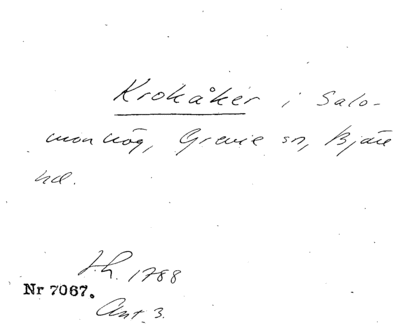 Krokåker i Salo-
monhög, Grevie sn, Bjäre
hd.
1788
Nr 7067.
Ant. 3.